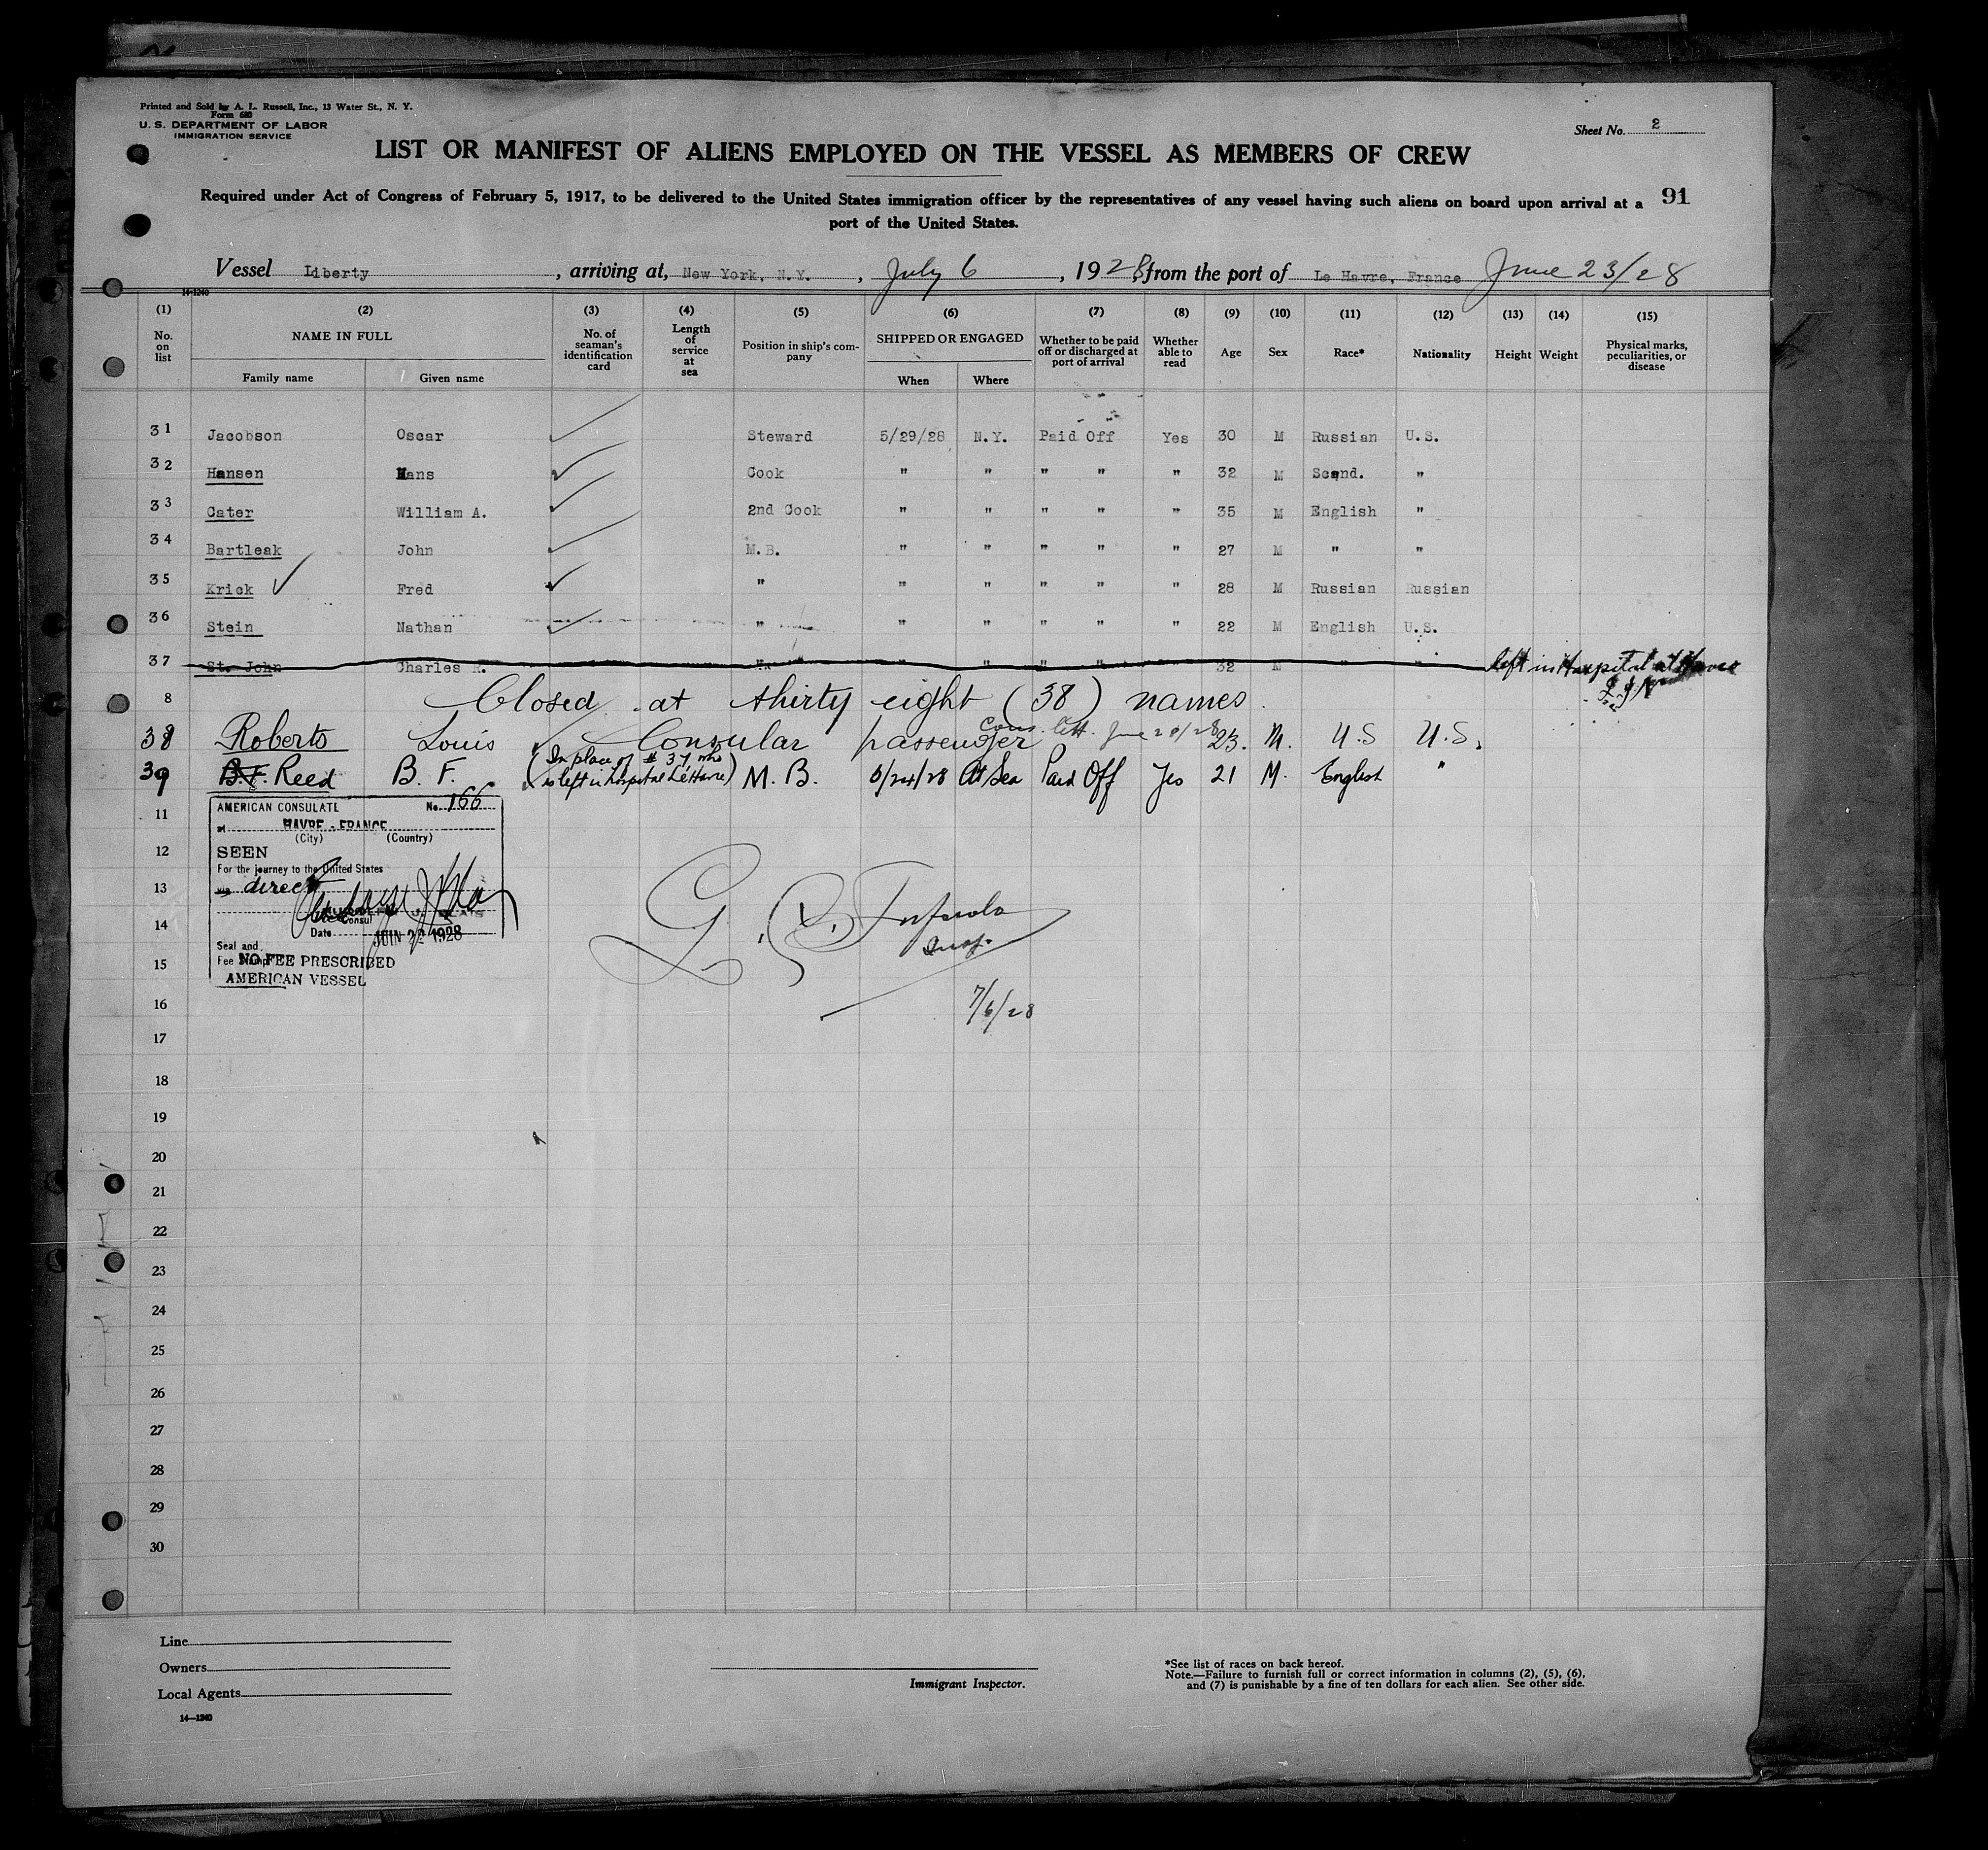 Printed and Sold by A. L. Russell, Inc., 13 Water St., N. Y.
Form 680
U. S. DEPARTMENT OF LABOR
IMMIGRATION SERVICE
Sheet No. 2
LIST OR MANIFEST OF ALIENS EMPLOYED ON THE VESSEL AS MEMBERS OF CREW
Required under Act of Congress of February 5, 1917, to be delivered to the United States immigration officer by the representatives of any vessel having such aliens on board upon arrival at a 91
port of the United States.
Vessel Liberty, arriving at, New York, N.Y., July 6, 1928, from the port of Le Havre, France June 23/28
14-1240
(1) (2) (3) (4) (5) (6) (7) (8) (9) (10) (11) (12) (13) (14) (15)
No. on list NAME IN FULL Family name Given name No. of seaman's identification card Length of service at sea Position in ship's company SHIPPED OR ENGAGED When Where Whether to be paid off or discharged at port of arrival Whether able to read Age Sex Race* Nationality Height Weight Physical marks, peculiarities, or disease
31 Jacobson Oscar Steward 5/29/28 N.Y. Paid Off Yes 30 M Russian U.S.
32 Hansen Hans Cook " " " " " 32 M Scand. "
33 Cater William A. 2nd Cook " " " " " 35 M English "
34 Bartleak John M.B. " " " " " 27 M " "
35 Krick Fred " " " " " " 28 M Russian Russian
36 Stein Nathan " " " " " " 22 M English U.S.
37 St. John Charles R. " " " " " 32 M " " left in Hospital at Havre
8 Closed at thirty eight (38) names.
38 Roberts Louis Consular passenger June 20/28 23. M. U.S U.S.
39 B.F. Reed B. F. (In place of #37 who is left in hospital Le Havre) M. B. 6/24/28 At Sea Paid Off Yes 21 M. English "
AMERICAN CONSULATE No. 166
at HAVRE - FRANCE
(City) (Country)
SEEN
For the journey to the United States
via direct
Consul
Date JUIN 22 1928
Seal and
Fee Stamp NO FEE PRESCRIBED
AMERICAN VESSEL
Insp.
7/6/28
11
12
13
14
15
16
17
18
19
20
21
22
23
24
25
26
27
28
29
30
Line
Owners
Local Agents
14—1240
Immigrant Inspector.
*See list of races on back hereof.
Note.—Failure to furnish full or correct information in columns (2), (5), (6),
and (7) is punishable by a fine of ten dollars for each alien. See other side.